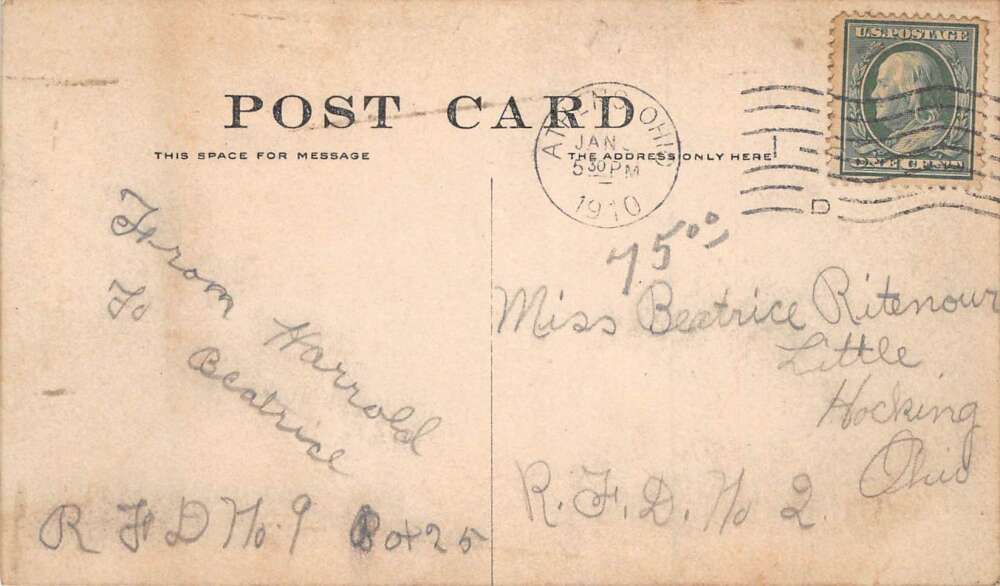 U.S. POSTAGE
ONE CENT
POST CARD
THIS SPACE FOR MESSAGE
THE ADDRESS ONLY HERE
ATHENS, OHIO
JAN
5 30 PM
1910
D
75⁰⁰
From Harrold
To Beatrice
R F D No. 9 Box 25
Miss Beatrice Ritenour
Little
Hocking
Ohio
R. F. D. No 2.